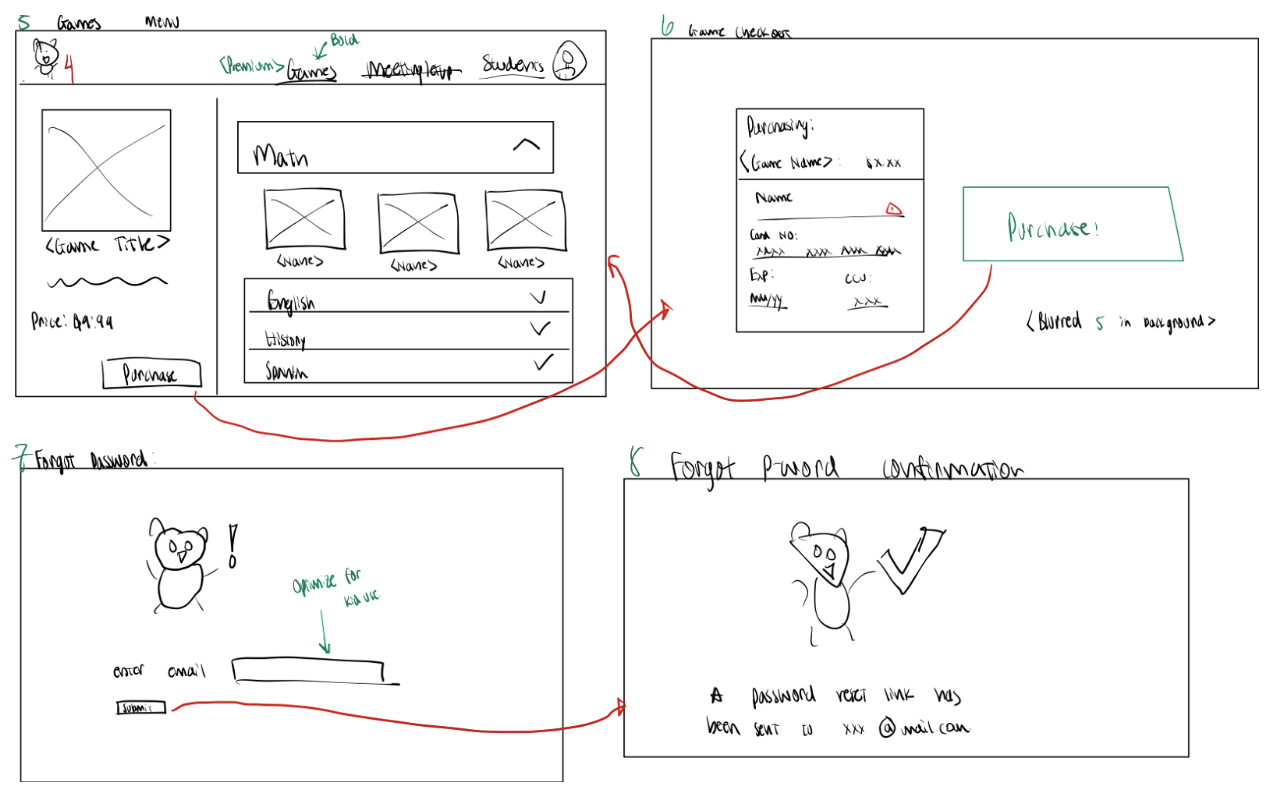 5 Games Menu
Bold
4
<Premium> Games Students
<Game Title>
Price: $9.99
Purchase
Math
<Name> <Name> <Name>
English
History
6 Game Checkout
Purchasing:
<Game Name>: $x.xx
Name
!
Card NO:
xxxx xxx xxxx xxxx
Exp: CCV:
mm/yy xxx
Purchase!
<Blurred 5 in background>
7 Forgot Password:
!
Optimize for
kid use
enter email
Submit
8 Forgot P-word confirmation
A password reset link has
been sent to xxx @mail.com